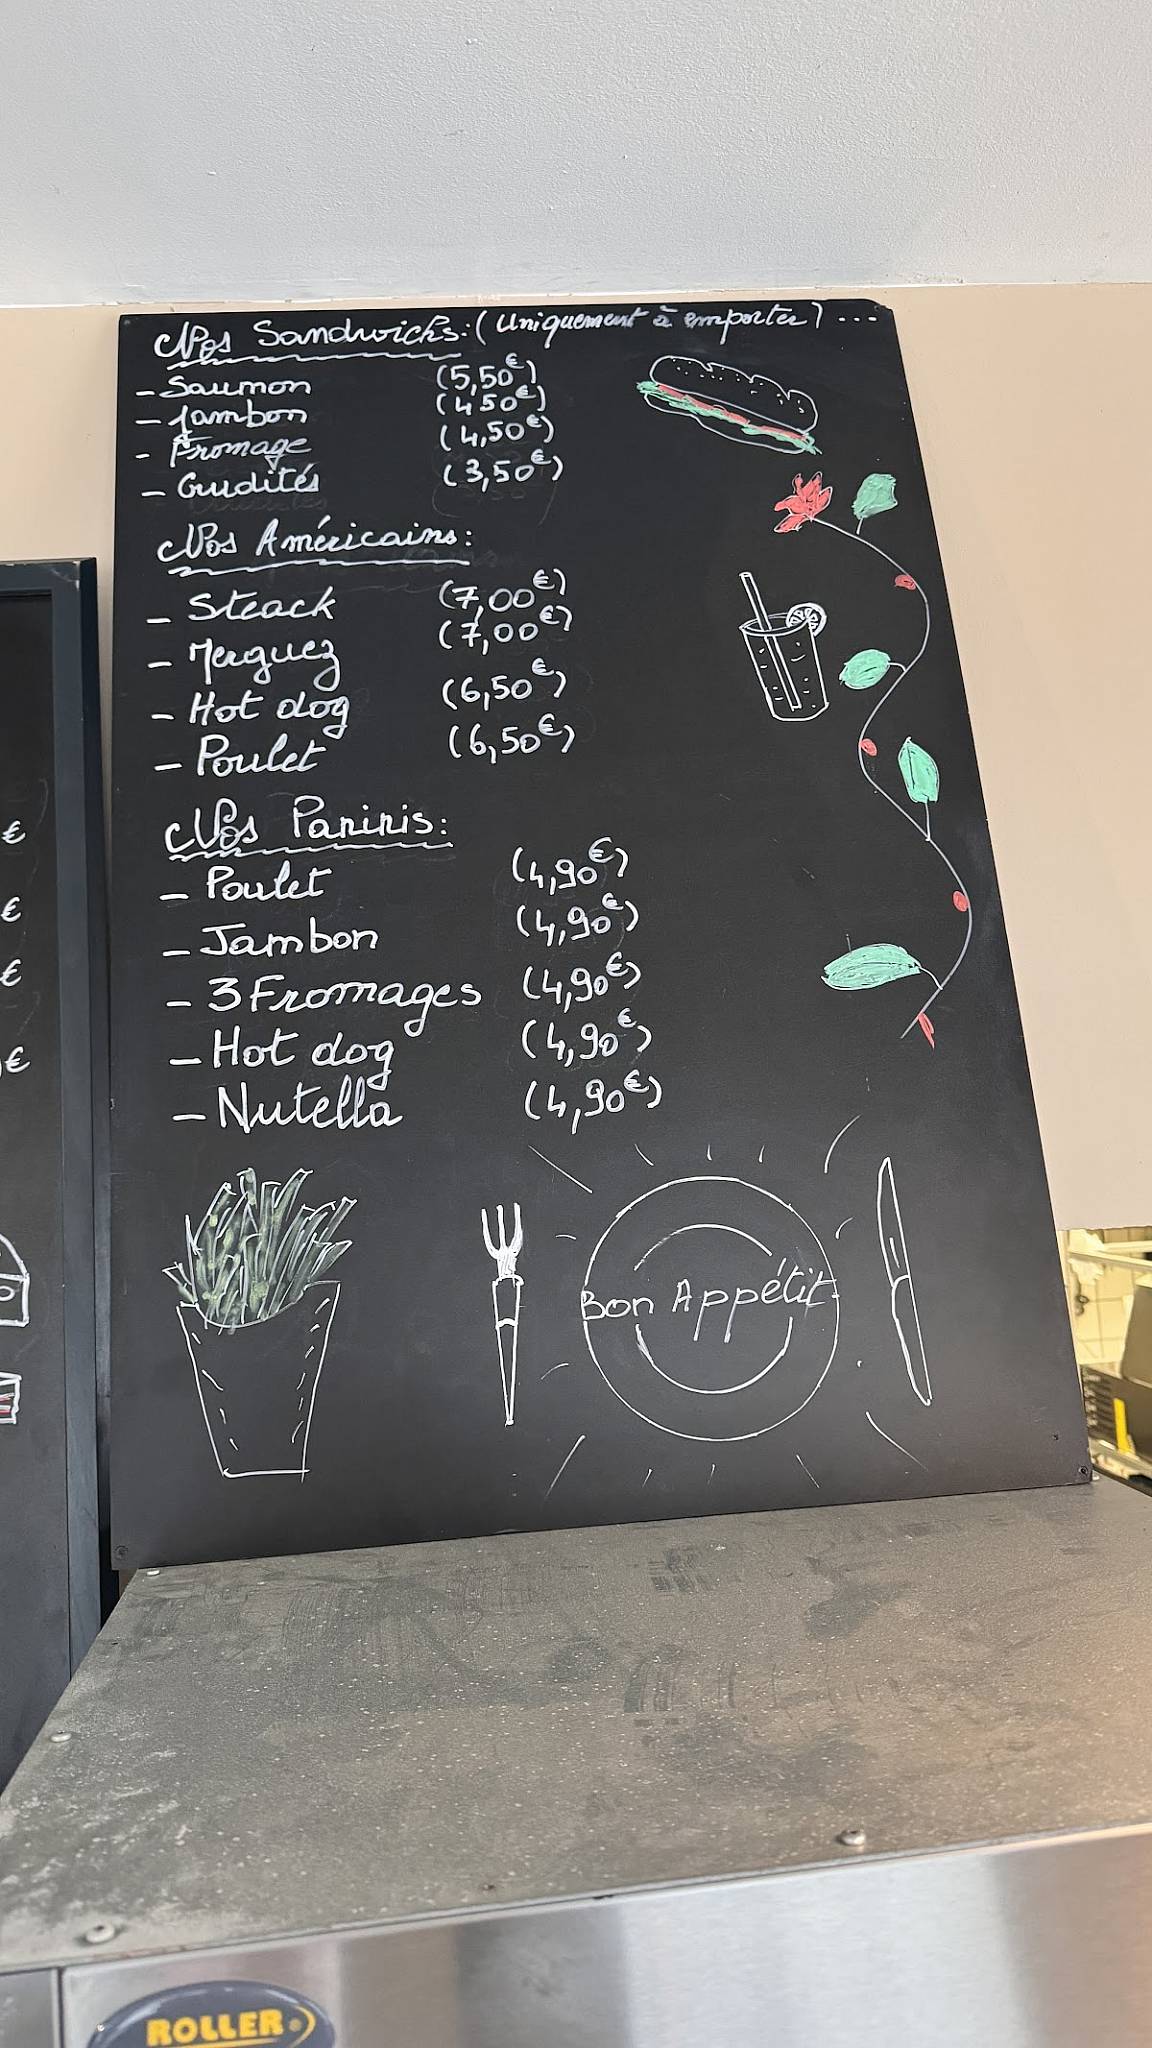 Nos Sandwichs: (Uniquement à emporter) ...
- Saumon (5,50€)
- Jambon (4 50€)
- Fromage (4,50€)
- Crudités (3,50€)
Nos Américains:
- Steack (7,00€)
- Merguez (7,00€)
- Hot dog (6,50€)
- Poulet (6,50€)
Nos Paninis:
- Poulet (4,90€)
- Jambon (4,90€)
- 3 Fromages (4,90€)
- Hot dog (4,90€)
- Nutella (4,90€)
Bon Appétit
€
€
€
€
ROLLER